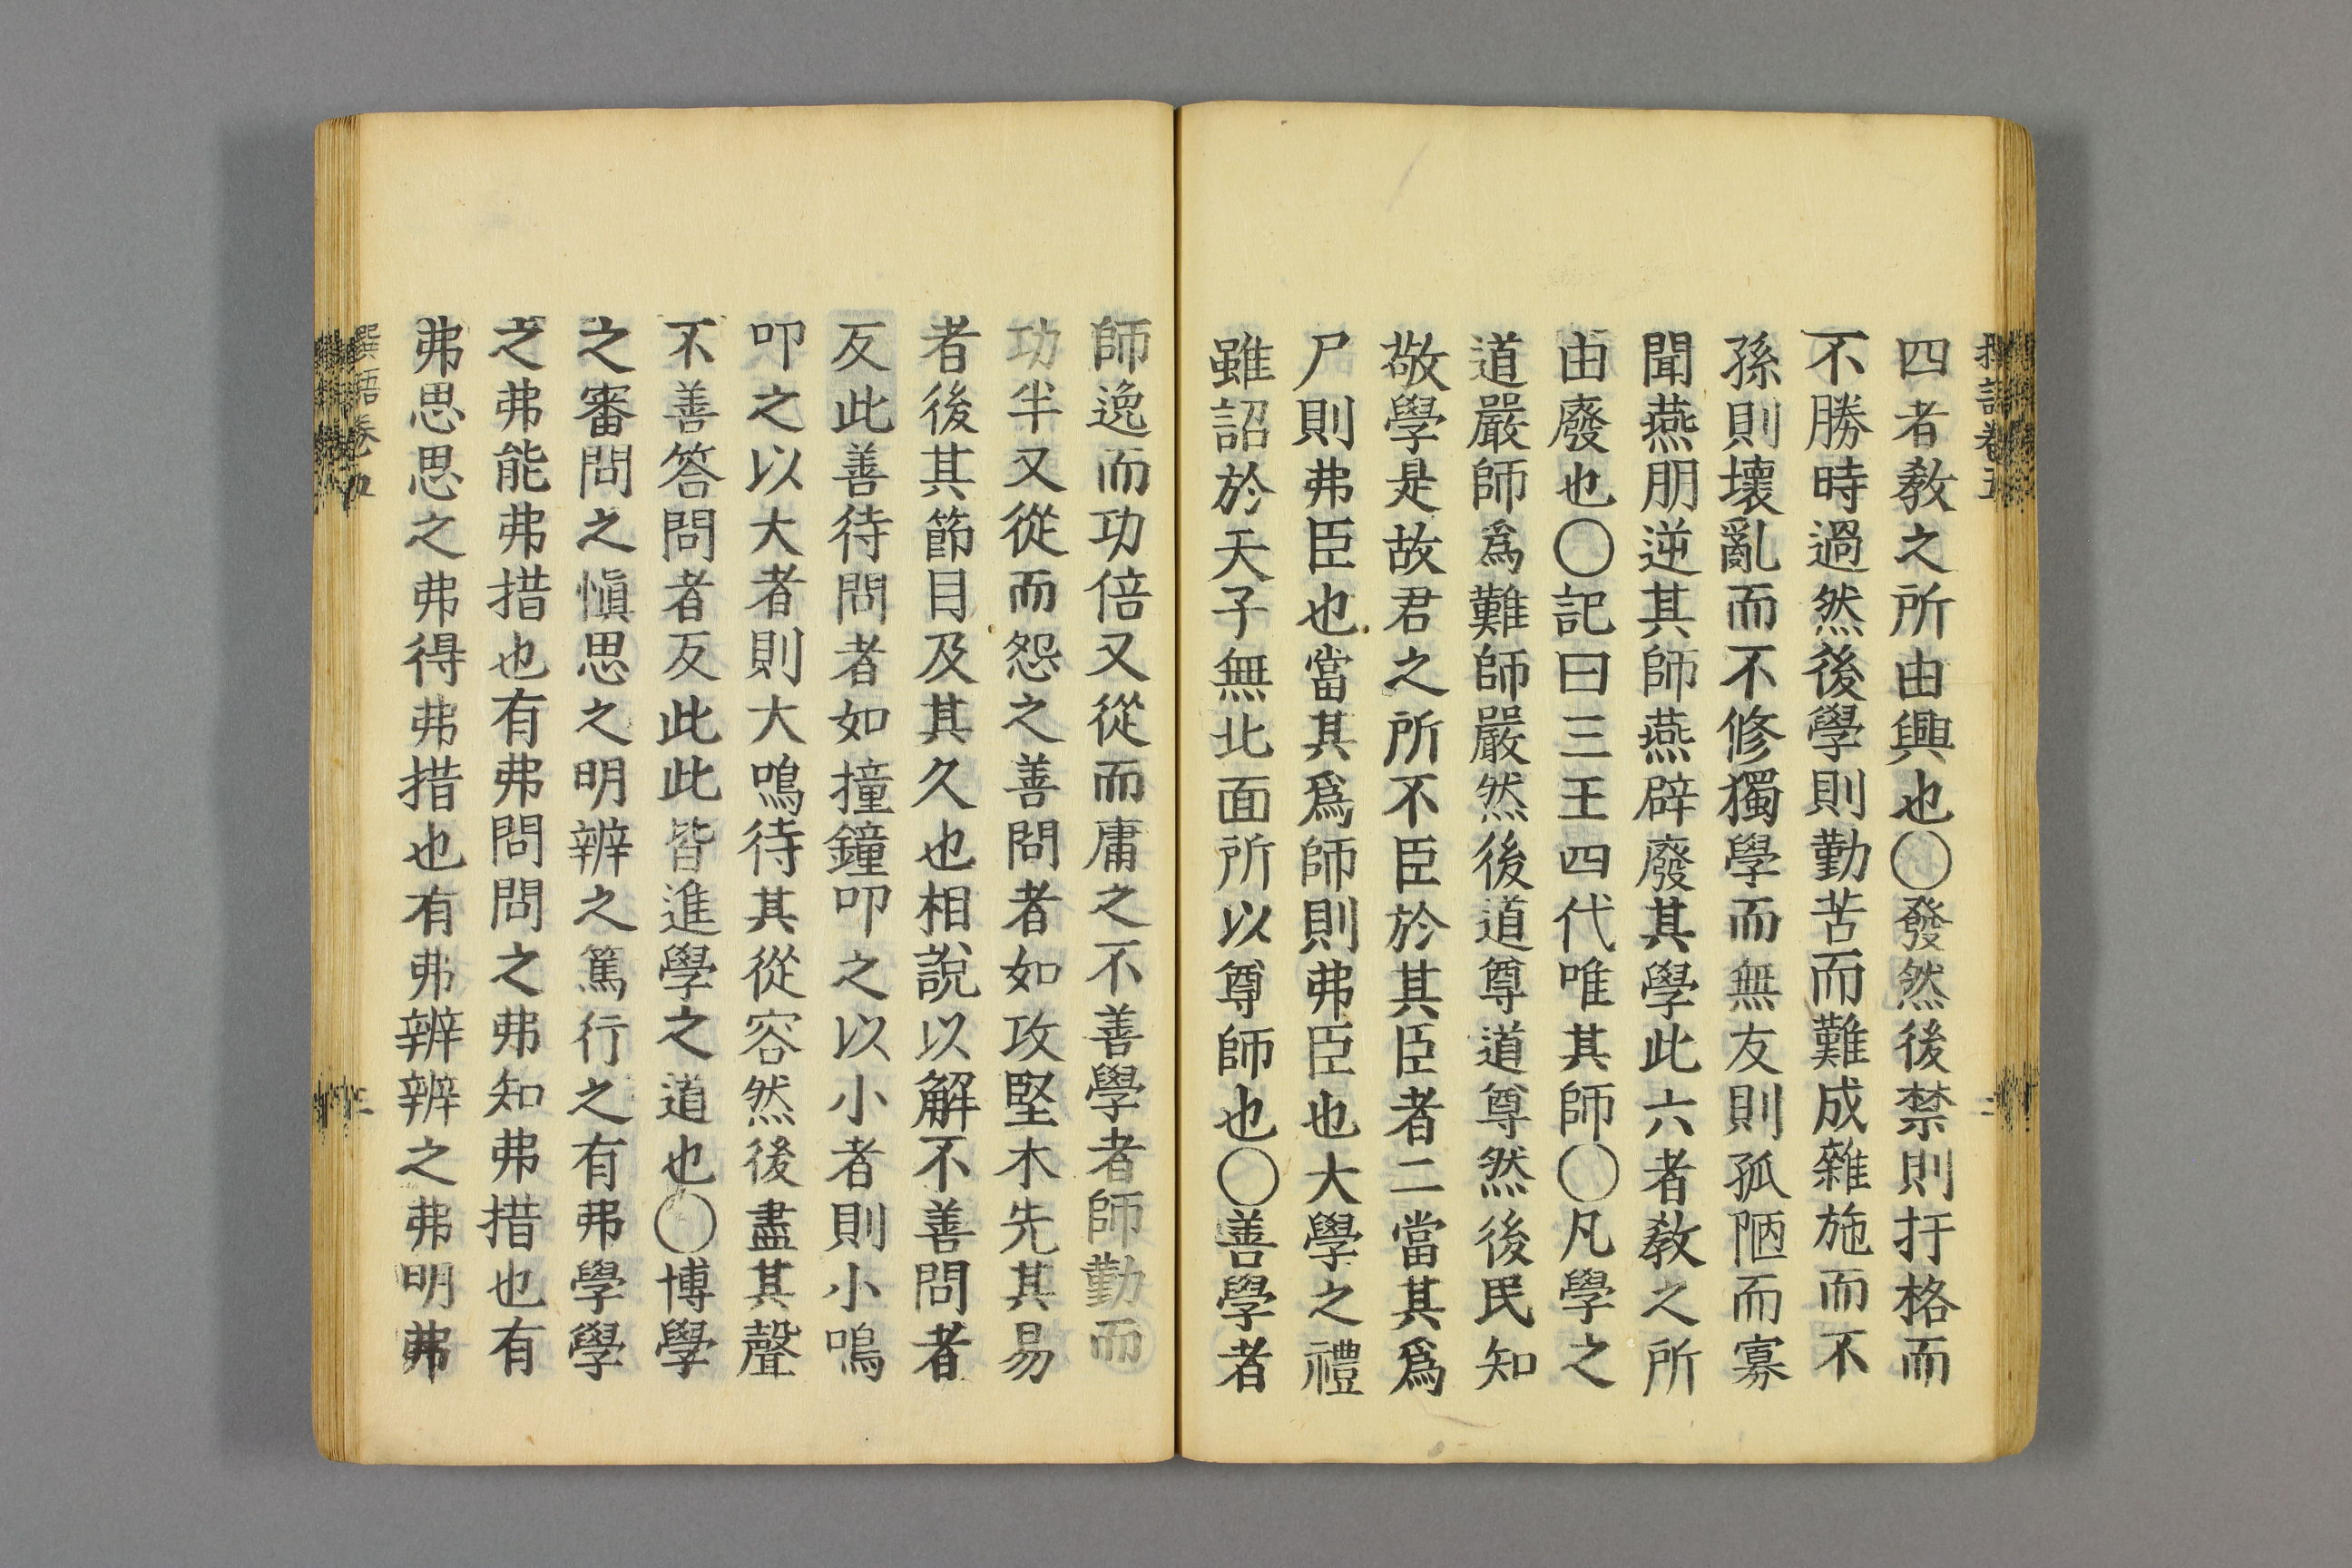 四者教之所由興也○發然後禁則扞格而
不勝時過然後學則勤苦而難成雜施而不
孫則壞亂而不修獨學而無友則孤陋而寡
聞燕朋逆其師燕辟廢其學此六者教之所
由廢也○記曰三王四代唯其師○凡學之
道嚴師爲難師嚴然後道尊道尊然後民知
敬學是故君之所不臣於其臣者二當其爲
尸則弗臣也當其爲師則弗臣也大學之禮
雖詔於天子無北面所以尊師也○善學者
師逸而功倍又從而庸之不善學者師勤而
功半又從而怨之善問者如攻堅木先其易
者後其節目及其久也相說以解不善問者
反此善待問者如撞鐘叩之以小者則小鳴
叩之以大者則大鳴待其從容然後盡其聲
不善答問者反此此皆進學之道也○博學
之審問之愼思之明辨之篤行之有弗學學
之弗能弗措也有弗問問之弗知弗措也有
弗思思之弗得弗措也有弗辨辨之弗明弗
卷五